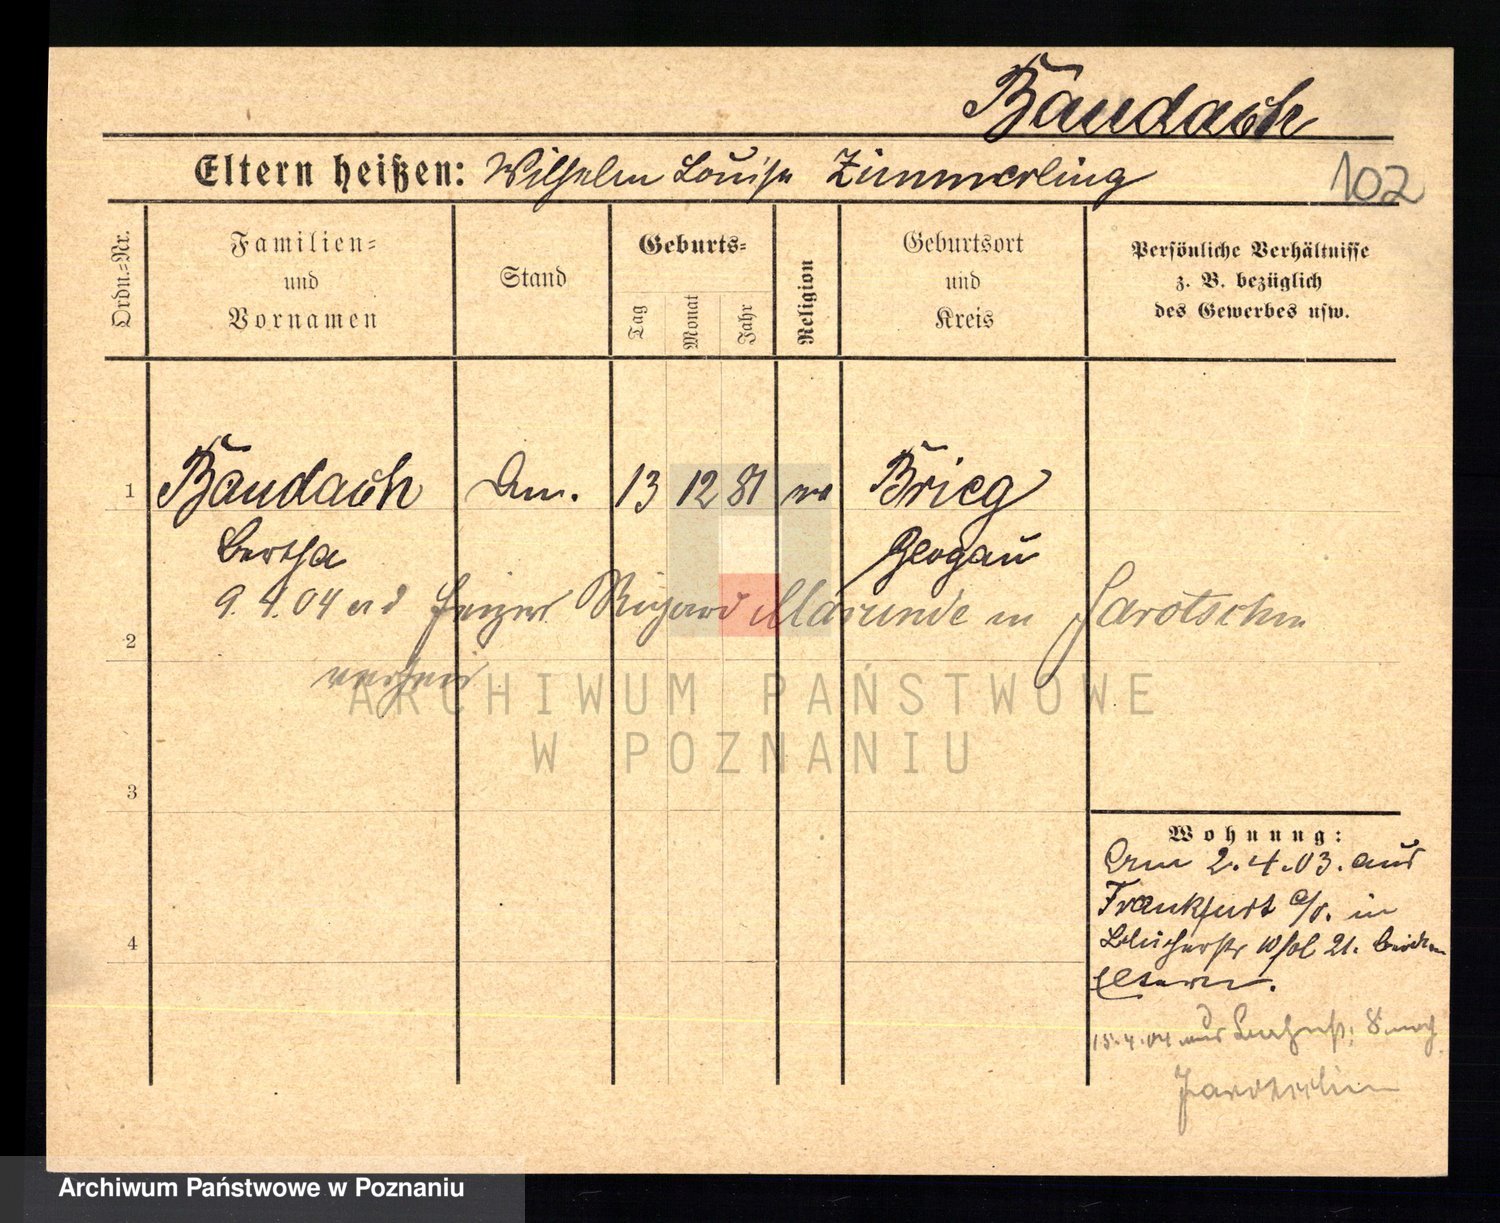 Baudach
Eltern heißen: Wilhelm Louise Zimmerling
102
Ordn.-Nr.
Familien-
und
Vornamen
Stand
Geburts-
Tag
Monat
Jahr
Religion
Geburtsort
und
Kreis
Persönliche Verhältnisse
z. B. bezüglich
des Gewerbes usw.
1 Baudach 13 12 81 Brieg
Bertha Glogau
9.4.04 Heizer Richard Marunde in Jarotschin
2
verheir
3
4
Wohnung:
2.4.03. aus
Frankfurt a/O. in
Blücherstr 21. bei den
Eltern.
15.4.04 aus 8 nach
Jarotschin
ARCHIWUM PAŃSTWOWE
W POZNANIU
Archiwum Państwowe w Poznaniu